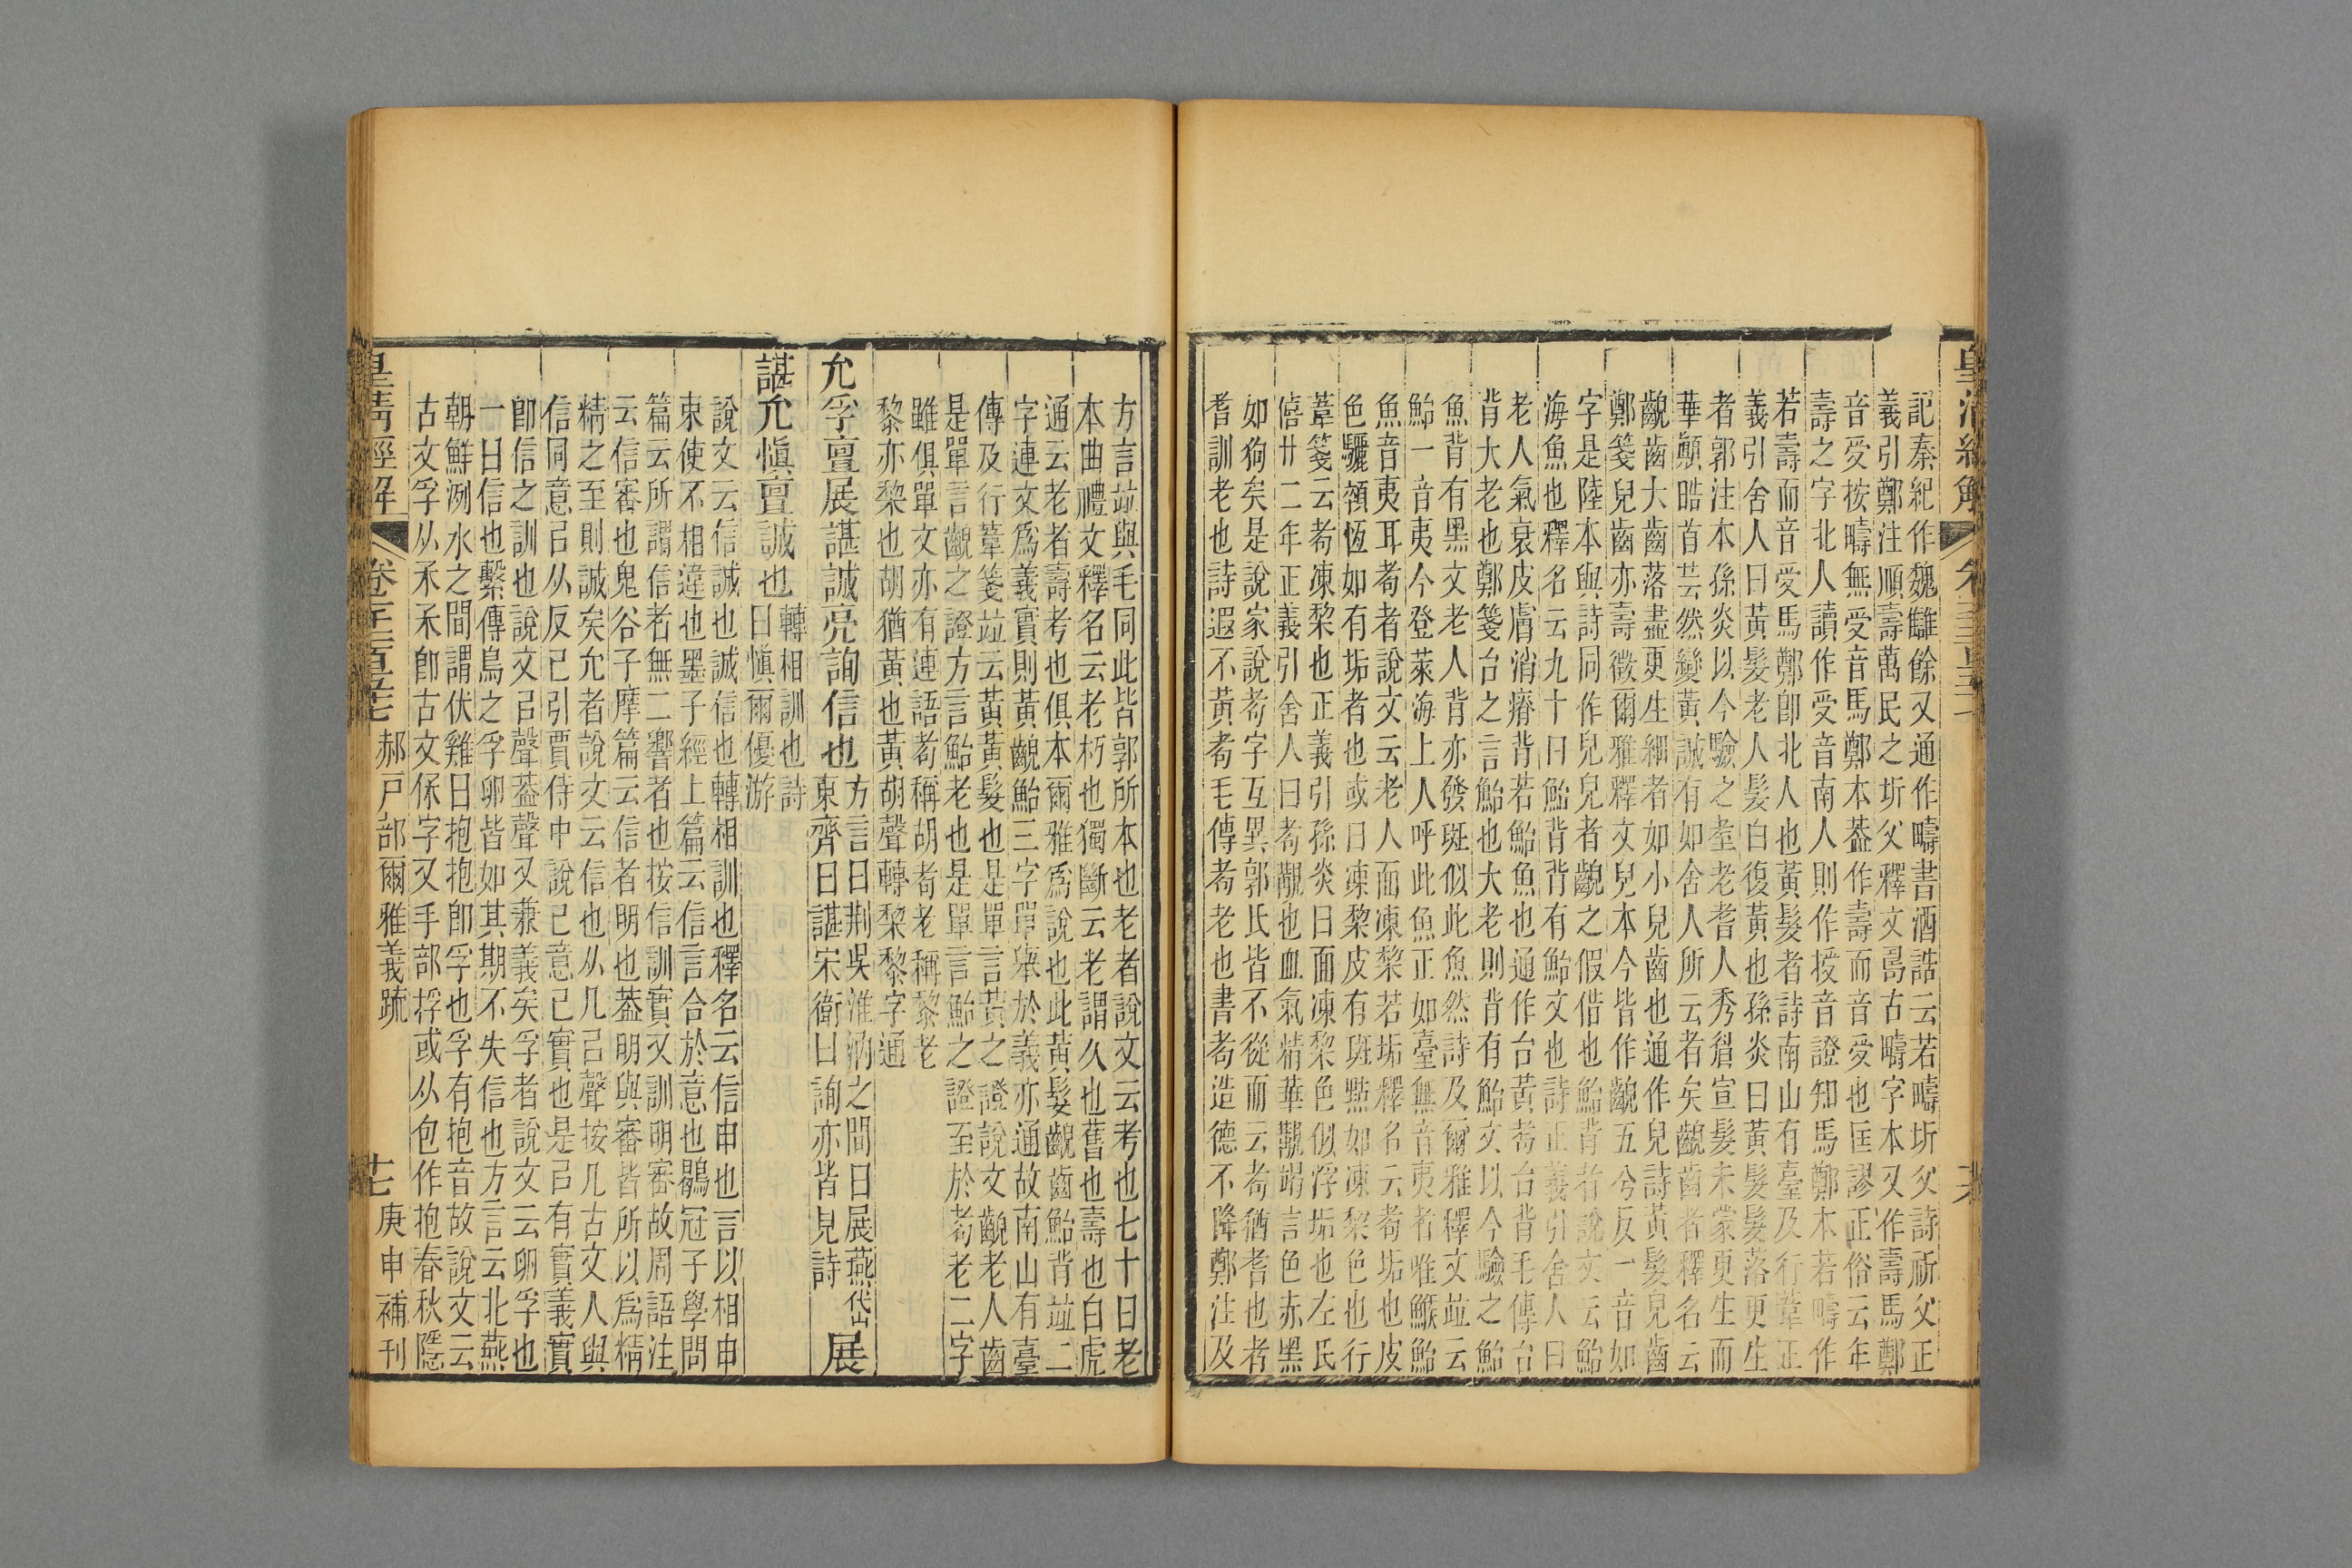 記秦紀作魏讎餘又通作疇書酒誥云若疇圻父詩祈父正
義引鄭注順壽萬民之圻父釋文𠷎古疇字本又作壽馬鄭
音受按疇無受音馬鄭本葢作壽而音受也匡謬正俗云年
壽之字北人讀作受音南人則作授音證知馬鄭本若疇作
若壽而音受馬鄭卽北人也黃髮者詩南山有臺及行葦正
義引舍人曰黃髮老人髮白復黃也孫炎曰黃髮髮落更生
者郭注本孫炎以今驗之耊老耆人秀眉宣髮未蒙更生而
華顚皓首芸然變黃誠有如舍人所云者矣齯齒者釋名云
齯齒大齒落盡更生細者如小兒齒也通作兒詩黃髮兒齒
鄭箋兒齒亦壽徵爾雅釋文兒本今皆作齯五兮反一音如
字是陸本與詩同作兒兒者齯之假借也鮐背者說文云鮐
海魚也釋名云九十曰鮐背背有鮐文也詩正義引舍人曰
老人氣衰皮膚消瘠背若鮐魚也通作台黃耇台背毛傳台
背大老也鄭箋台之言鮐也大老則背有鮐文以今驗之鮐
魚背有黑文老人背亦發斑似此魚然詩及爾雅釋文竝云
鮐一音夷今登萊海上人呼此魚正如臺無音夷者唯鯸鮐
魚音夷耳耇者說文云老人面凍棃若垢釋名云耇垢也皮
色驪顇恆如有垢者也或曰凍棃皮有斑㸃如凍棃色也行
葦箋云耇凍棃也正義引孫炎曰面凍棃色似浮垢也左氏
僖廿二年正義引舍人曰耇覯也血氣精華覯竭言色赤黑
如狗矣是說家說耇字互異郭氏皆不從而云耇猶耆也耆
耆訓老也詩遐不黃耇毛傳耇老也書耇造德不降鄭注及
方言竝與毛同此皆郭所本也老者說文云考也七十曰老
本曲禮文釋名云老朽也獨斷云老謂久也舊也壽也白虎
通云老者壽考也俱本爾雅爲說也此黃髮齯齒鮐背竝二
字連文爲義實則黃齯鮐三字單舉於義亦通故南山有臺
傳及行葦箋竝云黃黃髮也是單言黃之證說文齯老人齒
是單言齯之證方言鮐老也是單言鮐之證至於耇老二字
雖俱單文亦有連語耇稱胡耇老稱黎老
黎亦棃也胡猶黃也黃胡聲轉棃黎字通
允孚亶展諶誠亮詢信也方言曰荆吳淮汭之間曰展燕岱東齊曰諶宋衛曰詢亦皆見詩展
諶允愼亶誠也轉相訓也詩曰愼爾優游
說文云信誠也誠信也轉相訓也釋名云信申也言以相申
束使不相違也墨子經上篇云信言合於意也鶡冠子學問
篇云所謂信者無二響者也按信訓實又訓明審故周語注
云信審也鬼谷子摩篇云信者明也葢明與審皆所以爲精
精之至則誠矣允者說文云信也从儿㠯聲按儿古文人與
信同意㠯从反已引賈侍中說已意已實也是㠯有實義實
卽信之訓也說文㠯聲葢聲又兼義矣孚者說文云卵孚也
一曰信也繫傳鳥之孚卵皆如其期不失信也方言云北燕
朝鮮洌水之間謂伏雞曰抱抱卽孚也孚有抱音故說文云
古文孚从𣎼𣎼卽古文保字又手部捊或从包作抱春秋隱
皇清經解
郝戶部爾雅義疏
庚申補刊